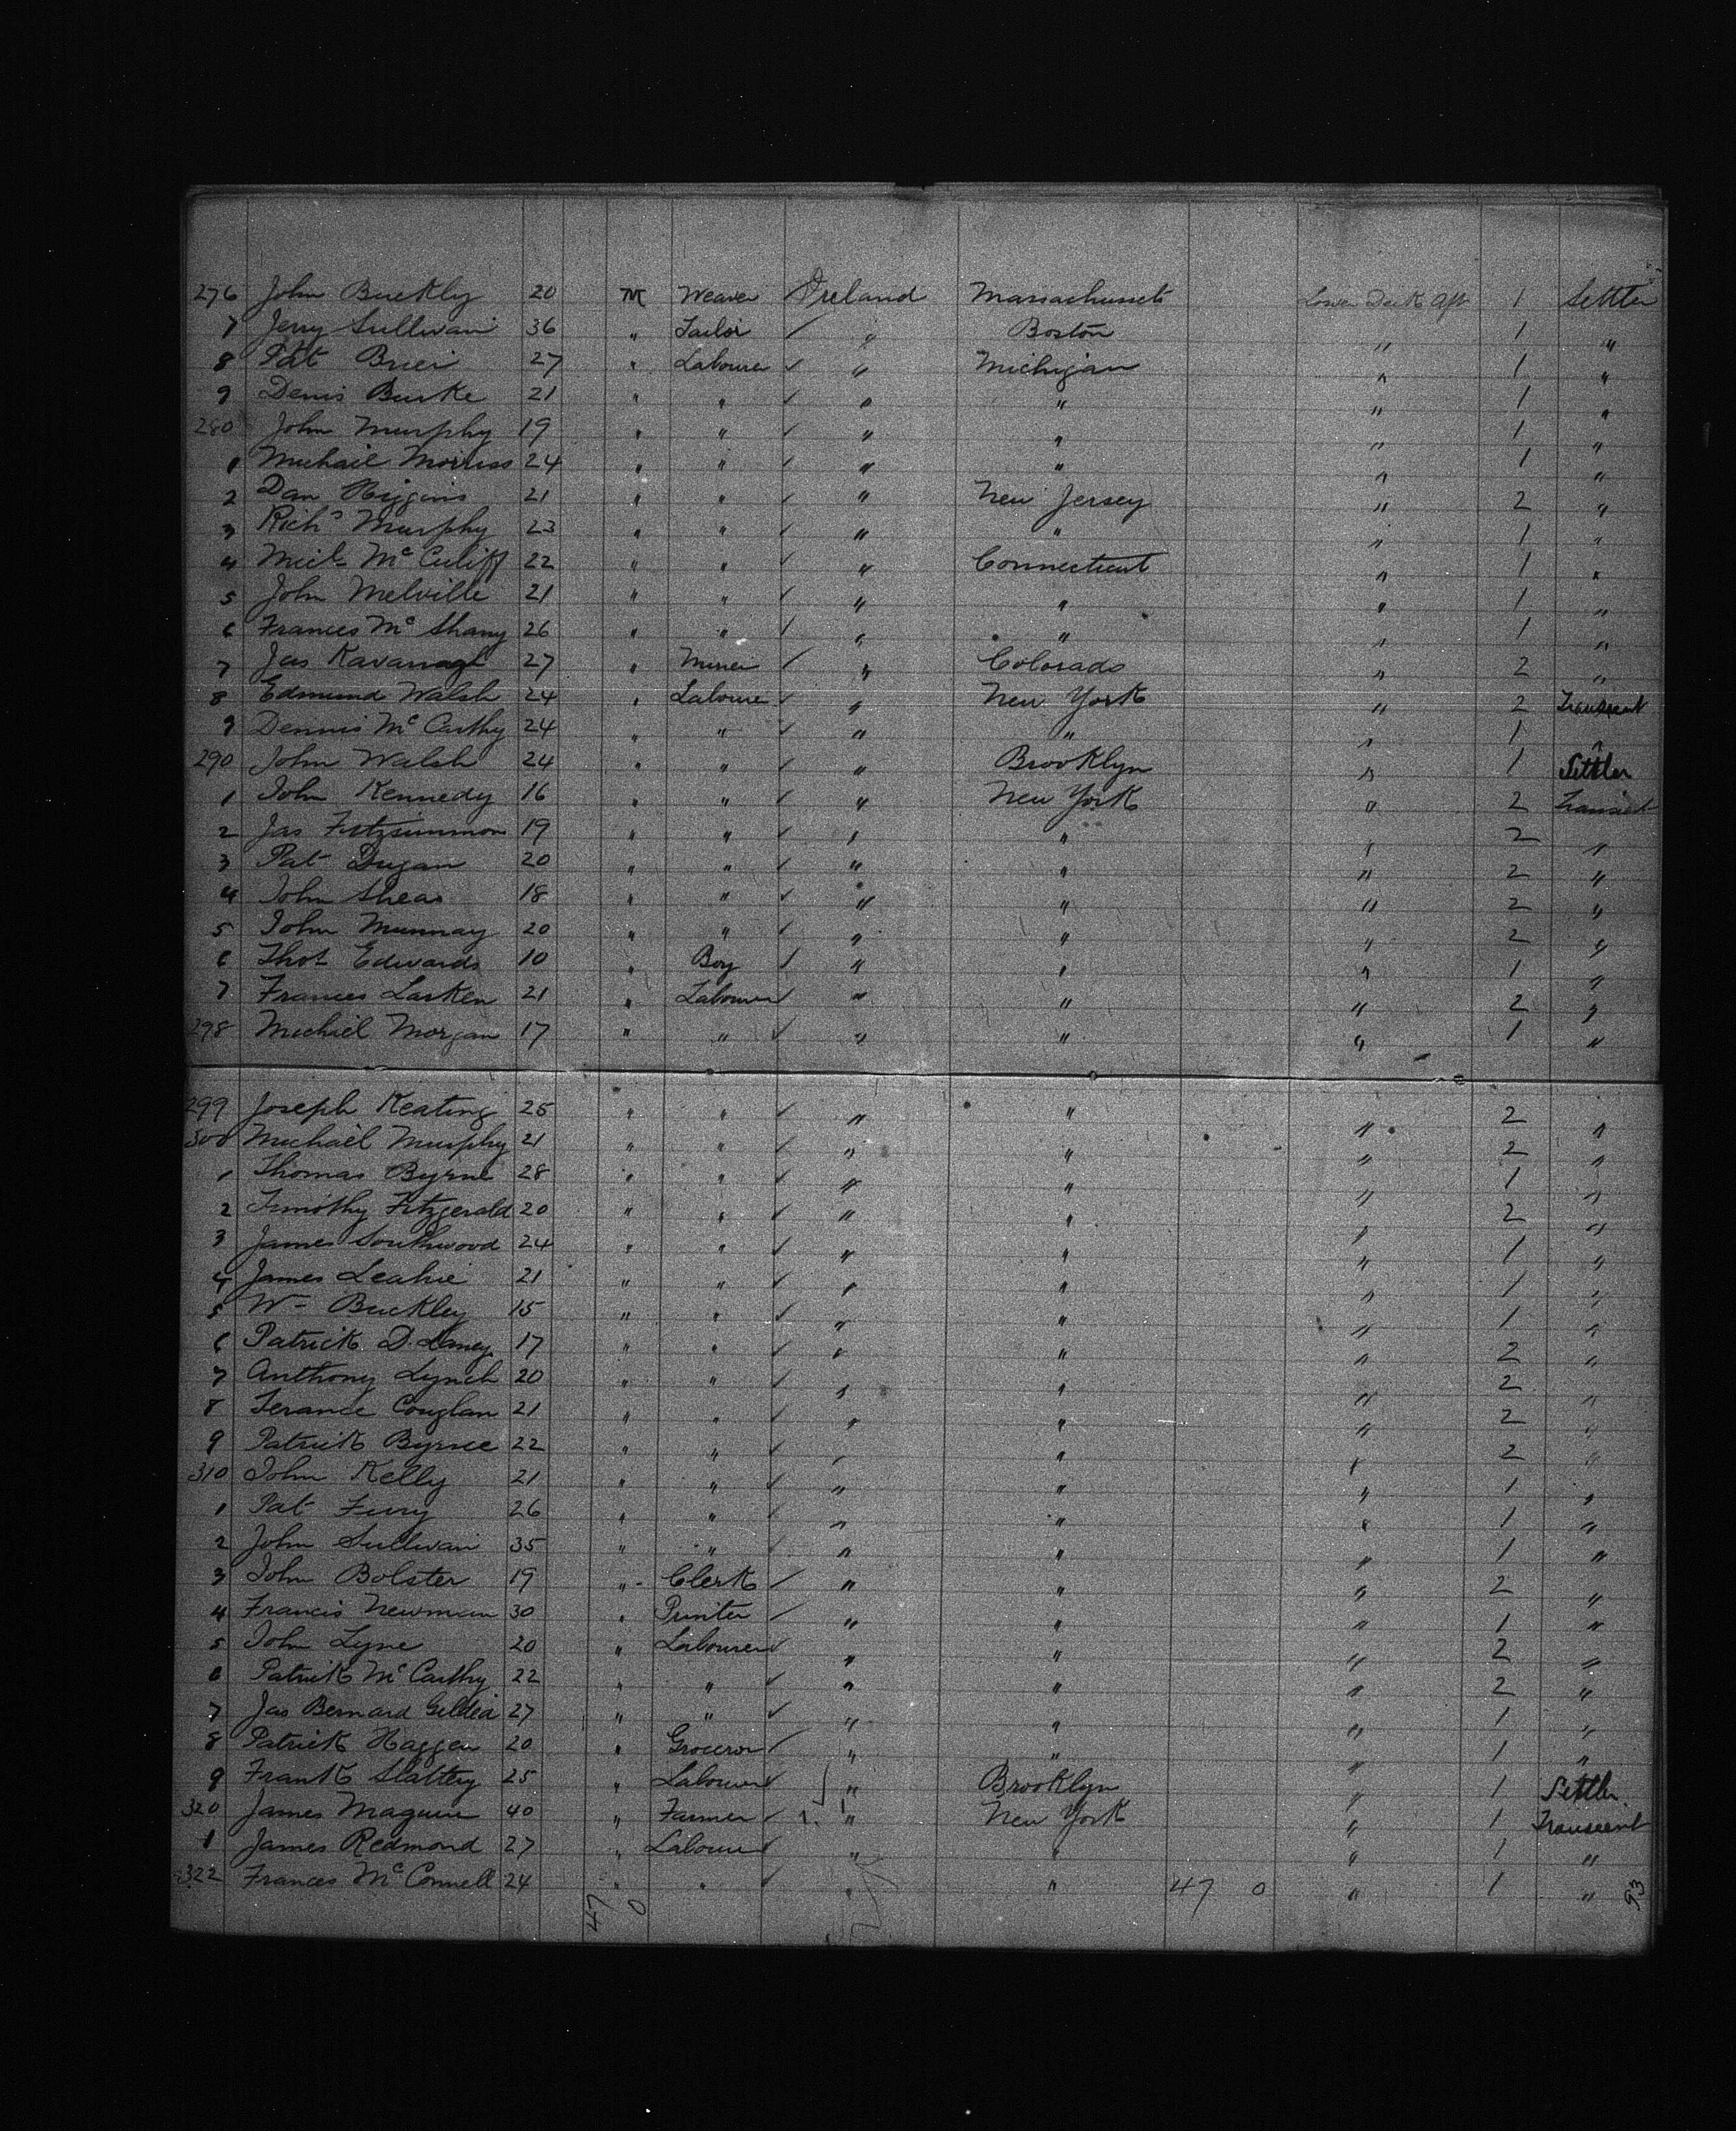 276 John Buckly 20 M Weaver Ireland Massachusets Lower Deck Aft 1 Settler
7 Jerry Sullivan 36 " Tailor ✓ " Boston " 1 "
8 Pat Brien 27 " Labourer ✓ " Michigan " 1 "
9 Denis Burke 21 " " ✓ " " " 1 "
280 John Murphy 19 " " ✓ " " " 1 "
1 Michael Morriss 24 " " ✓ " " " 1 "
2 Dan Higgins 21 " " ✓ " New Jersey " 2 "
3 Richd Murphy 23 " " ✓ " " " 1 "
4 Micl Mc Culiff 22 " " ✓ " Connecticut " 1 "
5 John Melville 21 " " ✓ " " " 1 "
6 Frances Mc Shany 26 " " ✓ " " " 1 "
7 Jas Kavanagh 27 " Miner ✓ " Colorado " 2 "
8 Edmund Walsh 24 " Labourer ✓ " New York " 2 Transient
9 Dennis Mc Carthy 24 " " ✓ " " " 1 "
290 John Walsh 24 " " ✓ " Brooklyn " 1 Settler
1 John Kennedy 16 " " ✓ " New York " 2 Transient
2 Jas Fitzsimmon 19 " " ✓ " " " 2 "
3 Pat Dugan 20 " " ✓ " " " 2 "
4 John Sheas 18 " " ✓ " " " 2 "
5 John Munnay 20 " " ✓ " " " 2 "
6 Thos Edwards 10 " Boy ✓ " " " 1 "
7 Frances Larken 21 " Labourer ✓ " " " 2 "
298 Michael Morgan 17 " " ✓ " " " 1 "
299 Joseph Keating 25 " " ✓ " " " 2 "
300 Michael Murphy 21 " " ✓ " " " 2 "
1 Thomas Byrne 28 " " ✓ " " " 1 "
2 Timothy Fitzgerald 20 " " ✓ " " " 2 "
3 James Southwood 24 " " ✓ " " " 1 "
4 James Leahie 21 " " ✓ " " " 1 "
5 Wm Buckley 15 " " ✓ " " " 1 "
6 Patrick D. Laney 17 " " ✓ " " " 2 "
7 Anthony Lynch 20 " " ✓ " " " 2 "
8 Terance Couglan 21 " " ✓ " " " 2 "
9 Patrick Byrne 22 " " ✓ " " " 2 "
310 John Kelly 21 " " ✓ " " " 1 "
1 Pat Fury 26 " " ✓ " " " 1 "
2 John Sullivan 35 " " ✓ " " " 1 "
3 John Bolster 19 " Clerk ✓ " " " 2 "
4 Francis Newman 30 " Printer ✓ " " " 1 "
5 John Lyne 20 " Labourer ✓ " " " 2 "
6 Patrick Mc Carthy 22 " " ✓ " " " 2 "
7 Jas Bernard Gildea 27 " " ✓ " " " 1 "
8 Patrick Haggen 20 " Grocer ✓ " " " 1 "
9 Frank Slattery 25 " Labourer ✓ " Brooklyn " 1 Settler
320 James Maguire 40 " Farmer ✓ " New York " 1 Transcent
1 James Redmond 27 " Labourer ✓ " " " 1 "
322 Frances Mc Connell 24 " " ✓ " " 47 0 " 1 "
47 0
93